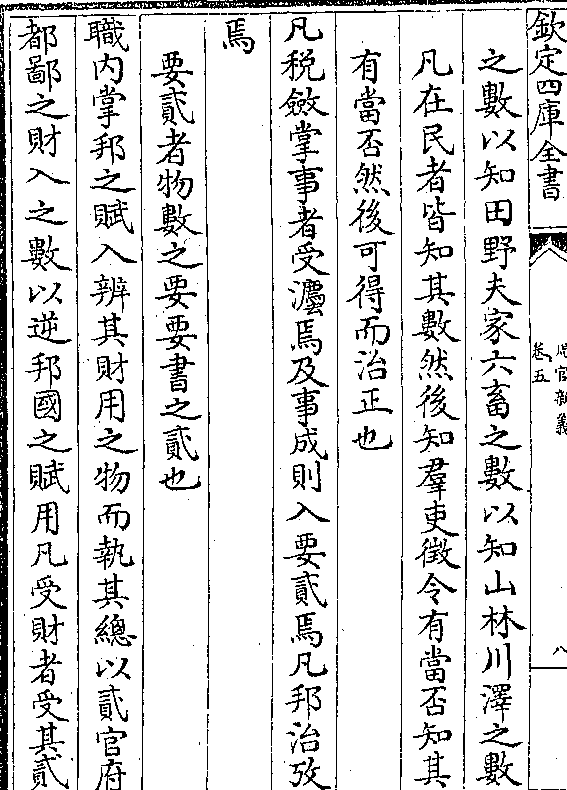 欽定四庫全書
周官新義
卷五
八
之數以知田野夫家六畜之數以知山林川澤之數
凡在民者皆知其數然後知羣吏徵令有當否知其
有當否然後可得而治正也
凡税斂掌事者受灋焉及事成則入要貳焉凡邦治攷
焉
要貳者物數之要要書之貳也
職内掌邦之賦入辨其財用之物而執其總以貳官府
都鄙之財入之數以逆邦國之賦用凡受財者受其貳